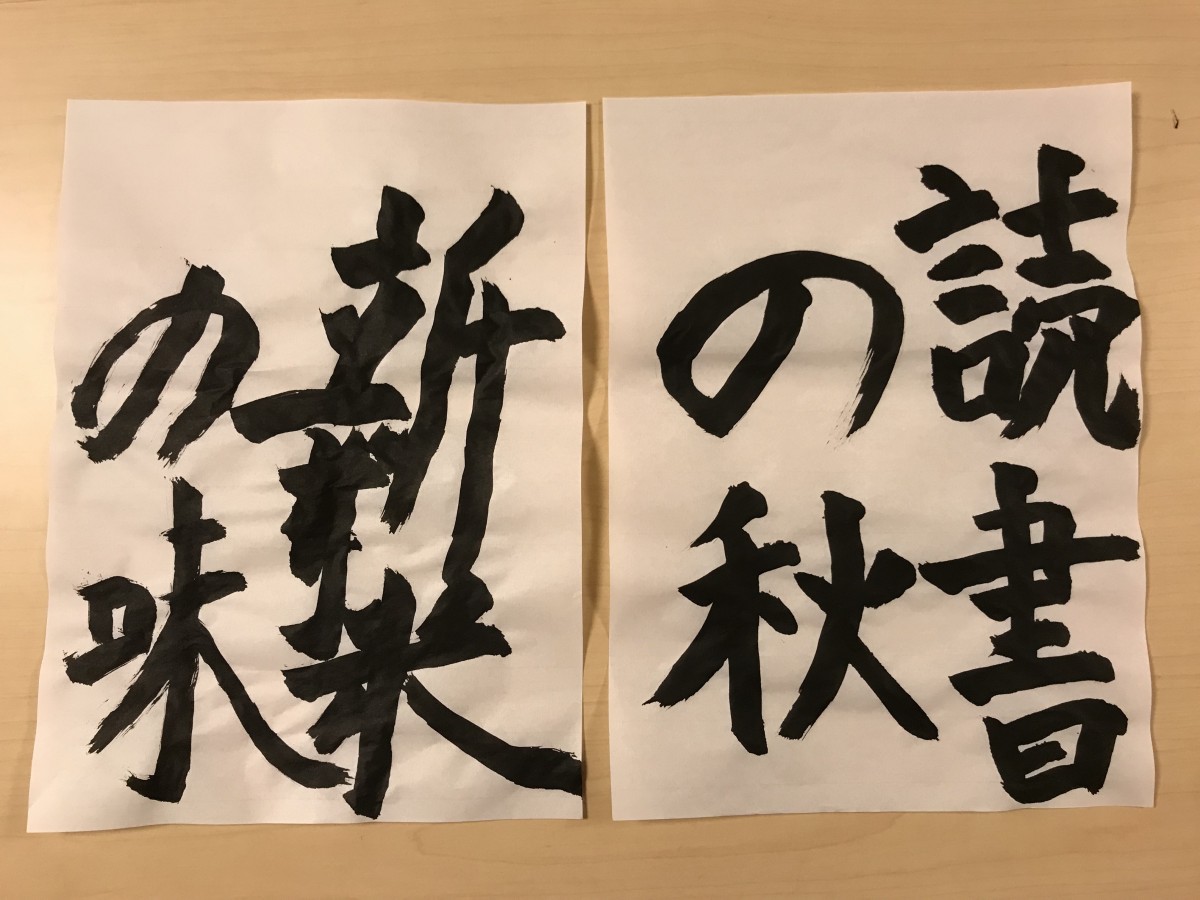 読書
の秋
新米
の味